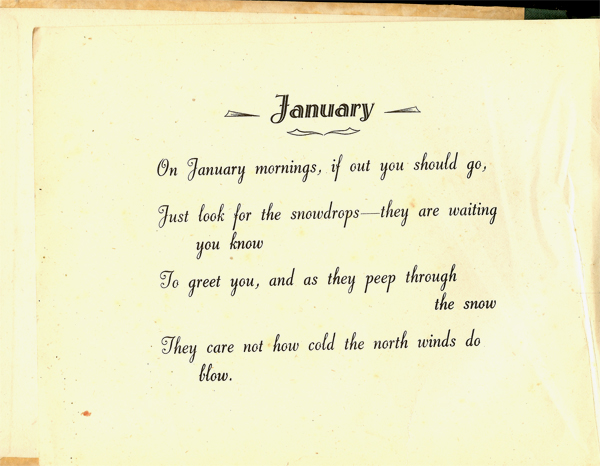 January
On January mornings, if out you should go,
Just look for the snowdrops—they are waiting
you know
To greet you, and as they peep through
the snow
They care not how cold the north winds do
blow.